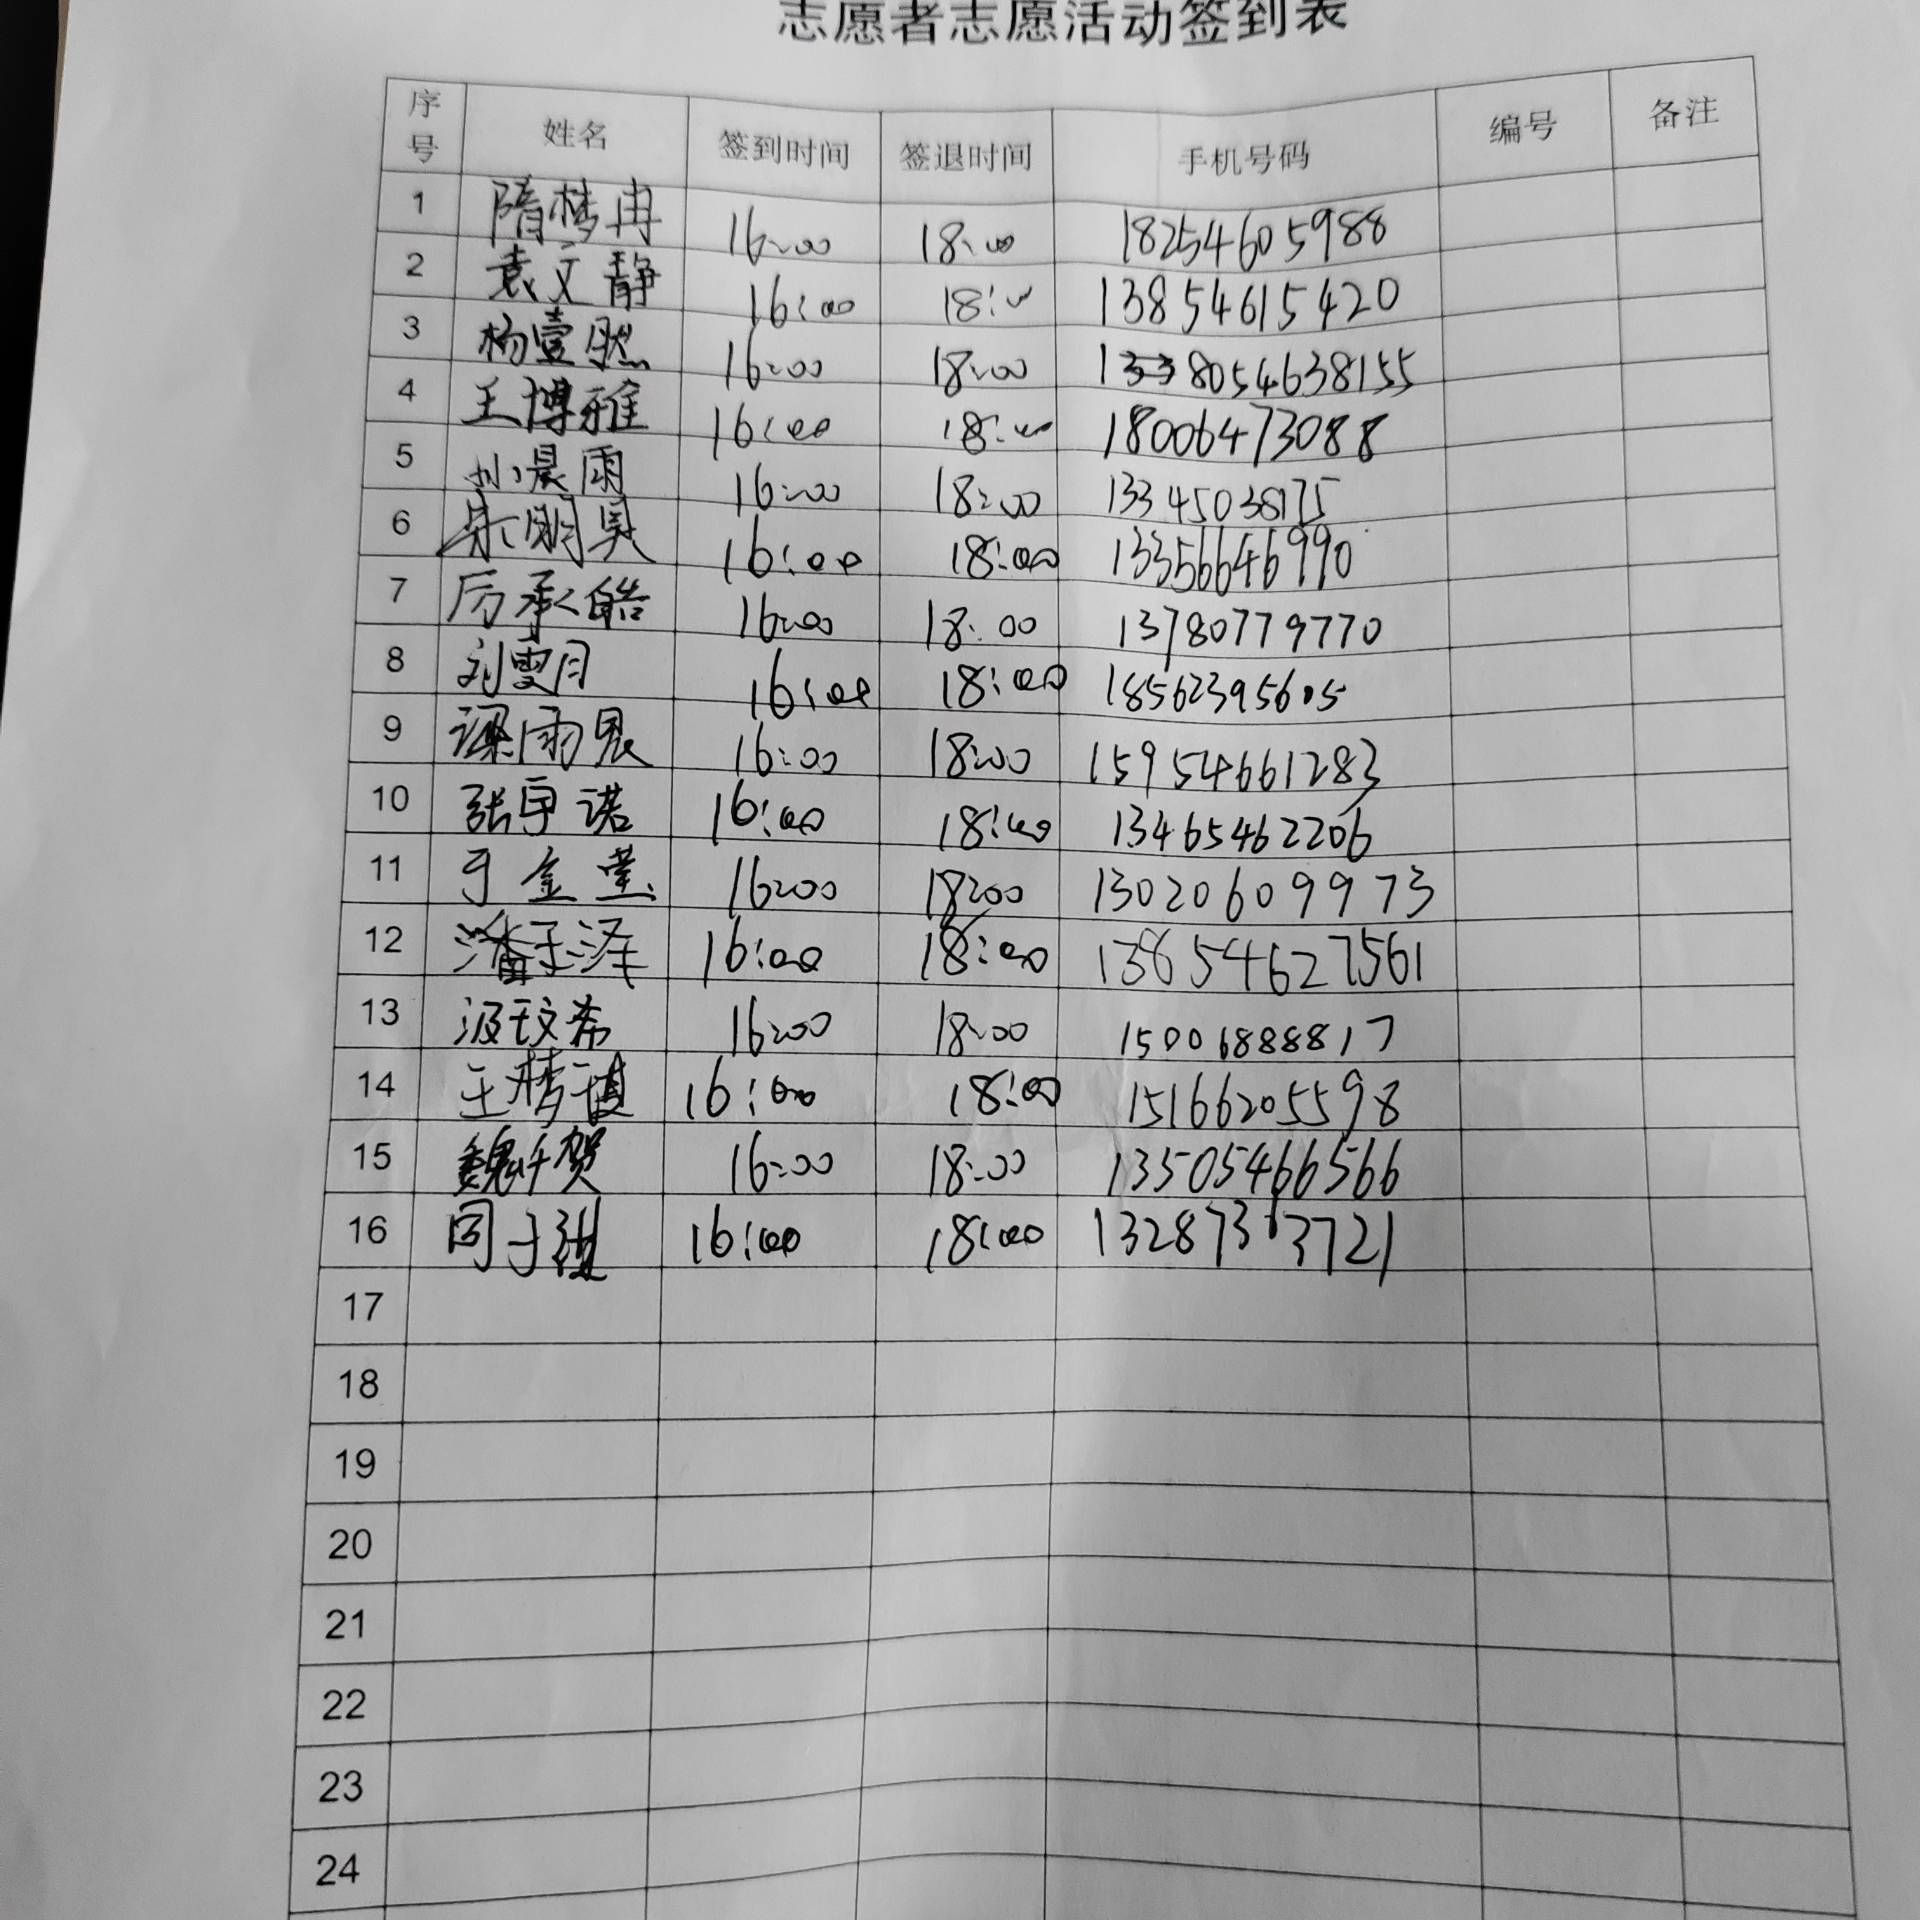 志愿者志愿活动签到表
序号 姓名 签到时间 签退时间 手机号码 编号 备注
1 隋梦冉 16:00 18:00 18254605988
2 袁文静 16:00 18:00 13854615420
3 杨壹然 16:00 18:00 18054638155
4 王博雅 16:00 18:00 18006473088
5 孙晨雨 16:00 18:00 13345038175
6 16:00 18:00 13356646990
7 厉承皓 16:00 18:00 13780779770
8 刘雯月 16:00 18:00 18562395605
9 梁雨晨 16:00 18:00 15954661283
10 张宇诺 16:00 18:00 13465462206
11 于金 16:00 18:00 13020609973
12 潘子泽 16:00 18:00 13854627561
13 汲玟希 16:00 18:00 15006888817
14 王梦 16:00 18:00 15166205598
15 魏千贺 16:00 18:00 13505466566
16 16:00 18:00
17
18
19
20
21
22
23
24